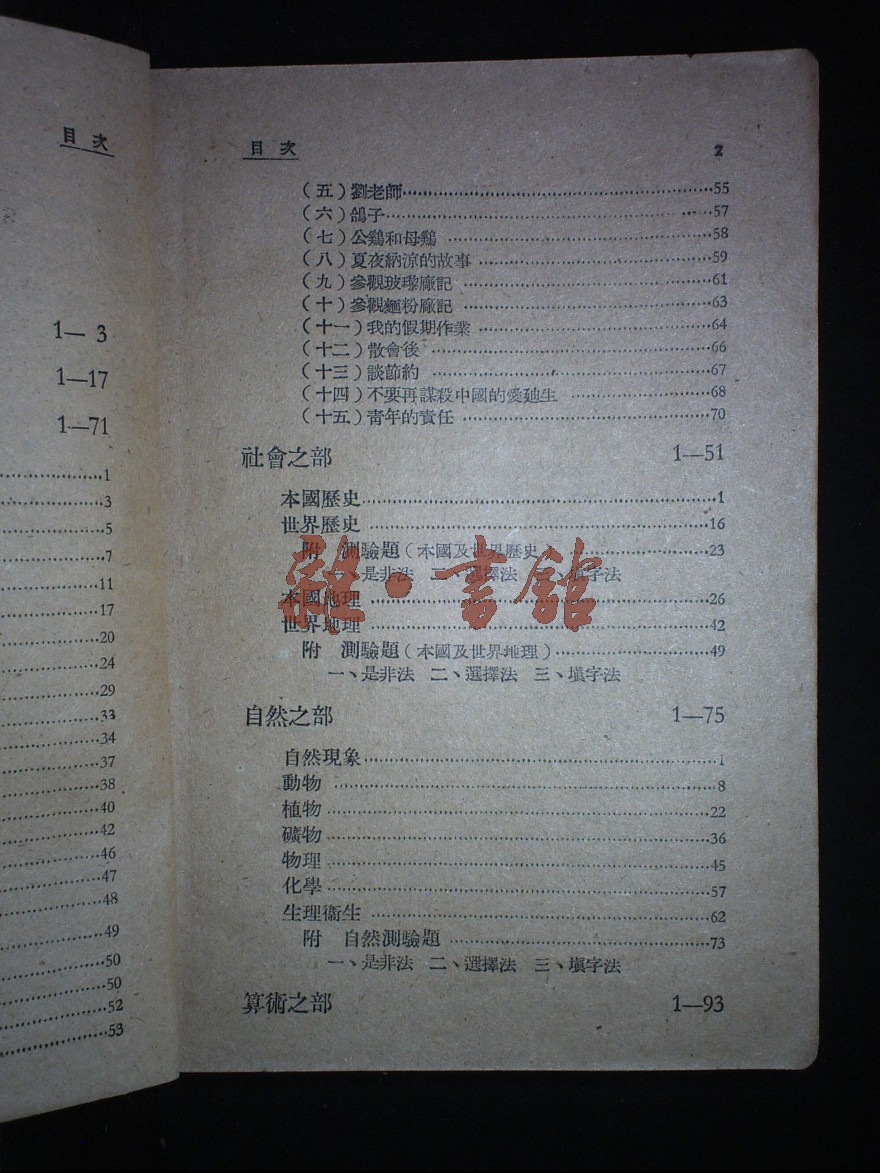 目次
1—3
1—17
1—71
1
3
5
7
11
17
20
24
29
33
34
37
38
40
42
46
47
48
49
50
50
52
53
目次 2
(五)劉老師 55
(六)鴿子 57
(七)公鷄和母鷄 58
(八)夏夜納涼的故事 59
(九)參觀玻瓈廠記 61
(十)參觀麵粉廠記 63
(十一)我的假期作業 64
(十二)散會後 66
(十三)談節約 67
(十四)不要再謀殺中國的愛廸生 68
(十五)靑年的責任 70
社會之部 1—51
本國歷史 1
世界歷史 16
附 測驗題(本國及世界歷史) 23
一、是非法 二、選擇法 三、塡字法
本國地理 26
世界地理 42
附 測驗題(本國及世界地理) 49
一、是非法 二、選擇法 三、塡字法
自然之部 1—75
自然現象 1
動物 8
植物 22
礦物 36
物理 45
化學 57
生理衞生 62
附 自然測驗題 73
一、是非法 二、選擇法 三、塡字法
算術之部 1—93
雜·書館